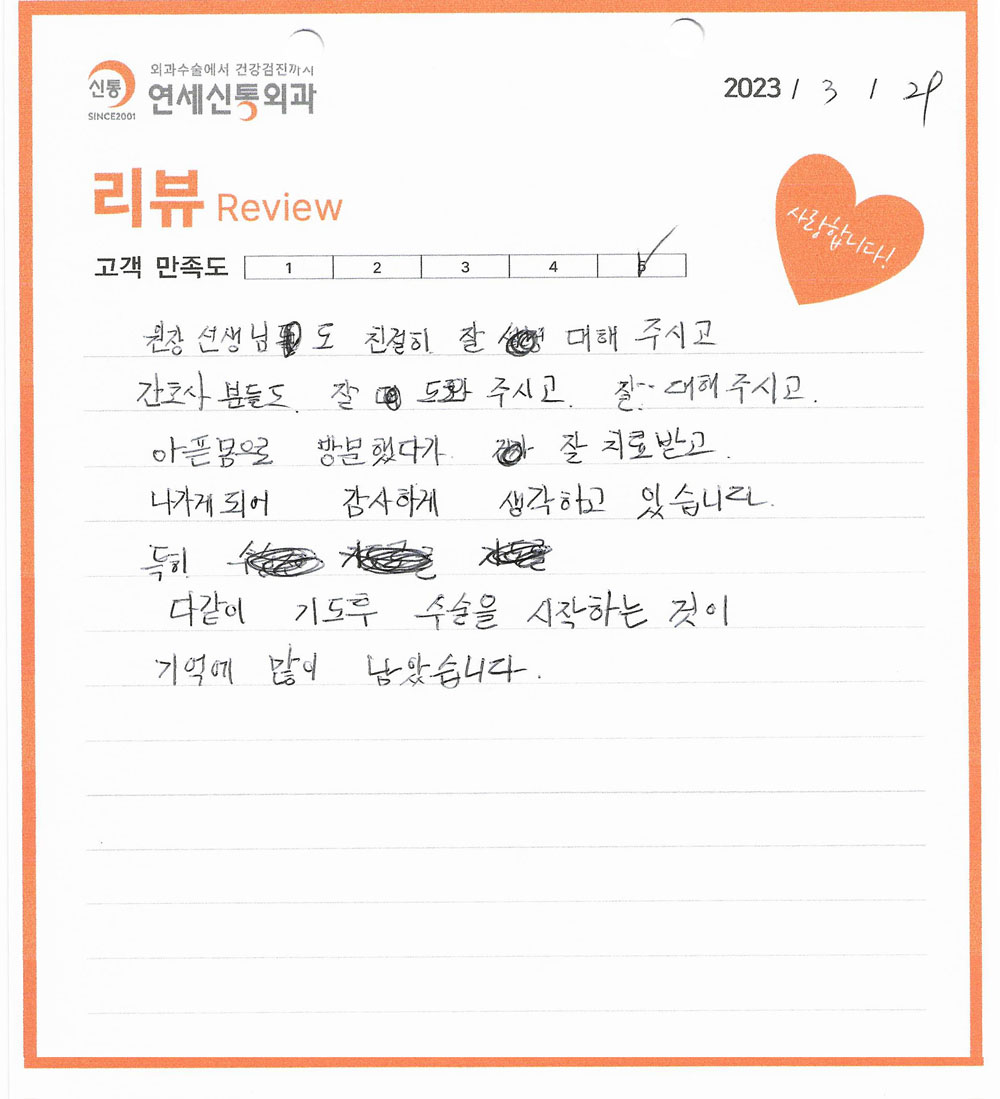 신통
SINCE2001
외과수술에서 건강검진까지
연세신통외과
2023 / 3 / 29
리뷰 Review
사랑합니다!
고객 만족도 1 2 3 4 5
원장 선생님 도 친절히 잘 대해 주시고
간호사 분들도. 잘 도와 주시고. 잘.. 대해주시고.
아픈몸으로 방문했다가 잘 치료받고.
나가게되어 감사하게 생각하고 있습니다.
특히
다같이 기도후 수술을 시작하는 것이
기억에 많이 남았습니다.